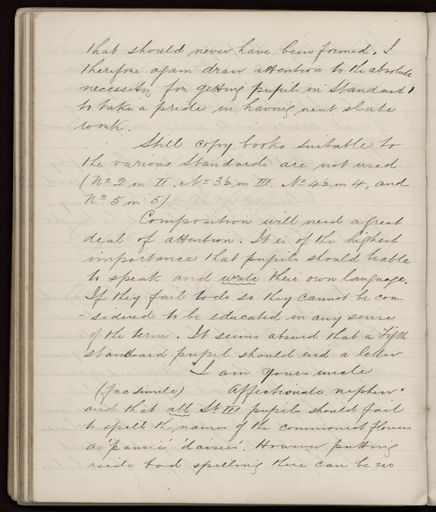 that should never have been formed. I
therefore again draw attention to the absolute
necessity for getting pupils in Standard 1
to take a pride in having neat slate
work.
Still copy books suitable to
the various Standards are not used
(No 2 in II. No 3½ in III No 4½ in 4, and
No 5 in 5).
Composition will need a great
deal of attention. It is of the highest
importance that pupils should be able
to speak and write their own language.
If they fail to do so they cannot be con-
sidered to be educated in any sense
of the term. It seems absurd that a Fifth
standard pupil should end a letter
"I am yours uncle
(facsimile) Affectionate nephew"
and that all St III pupils should fail
to spell the names of the commonest flowers
as 'pansies' 'daisies'. However putting
aside bad spelling there can be no